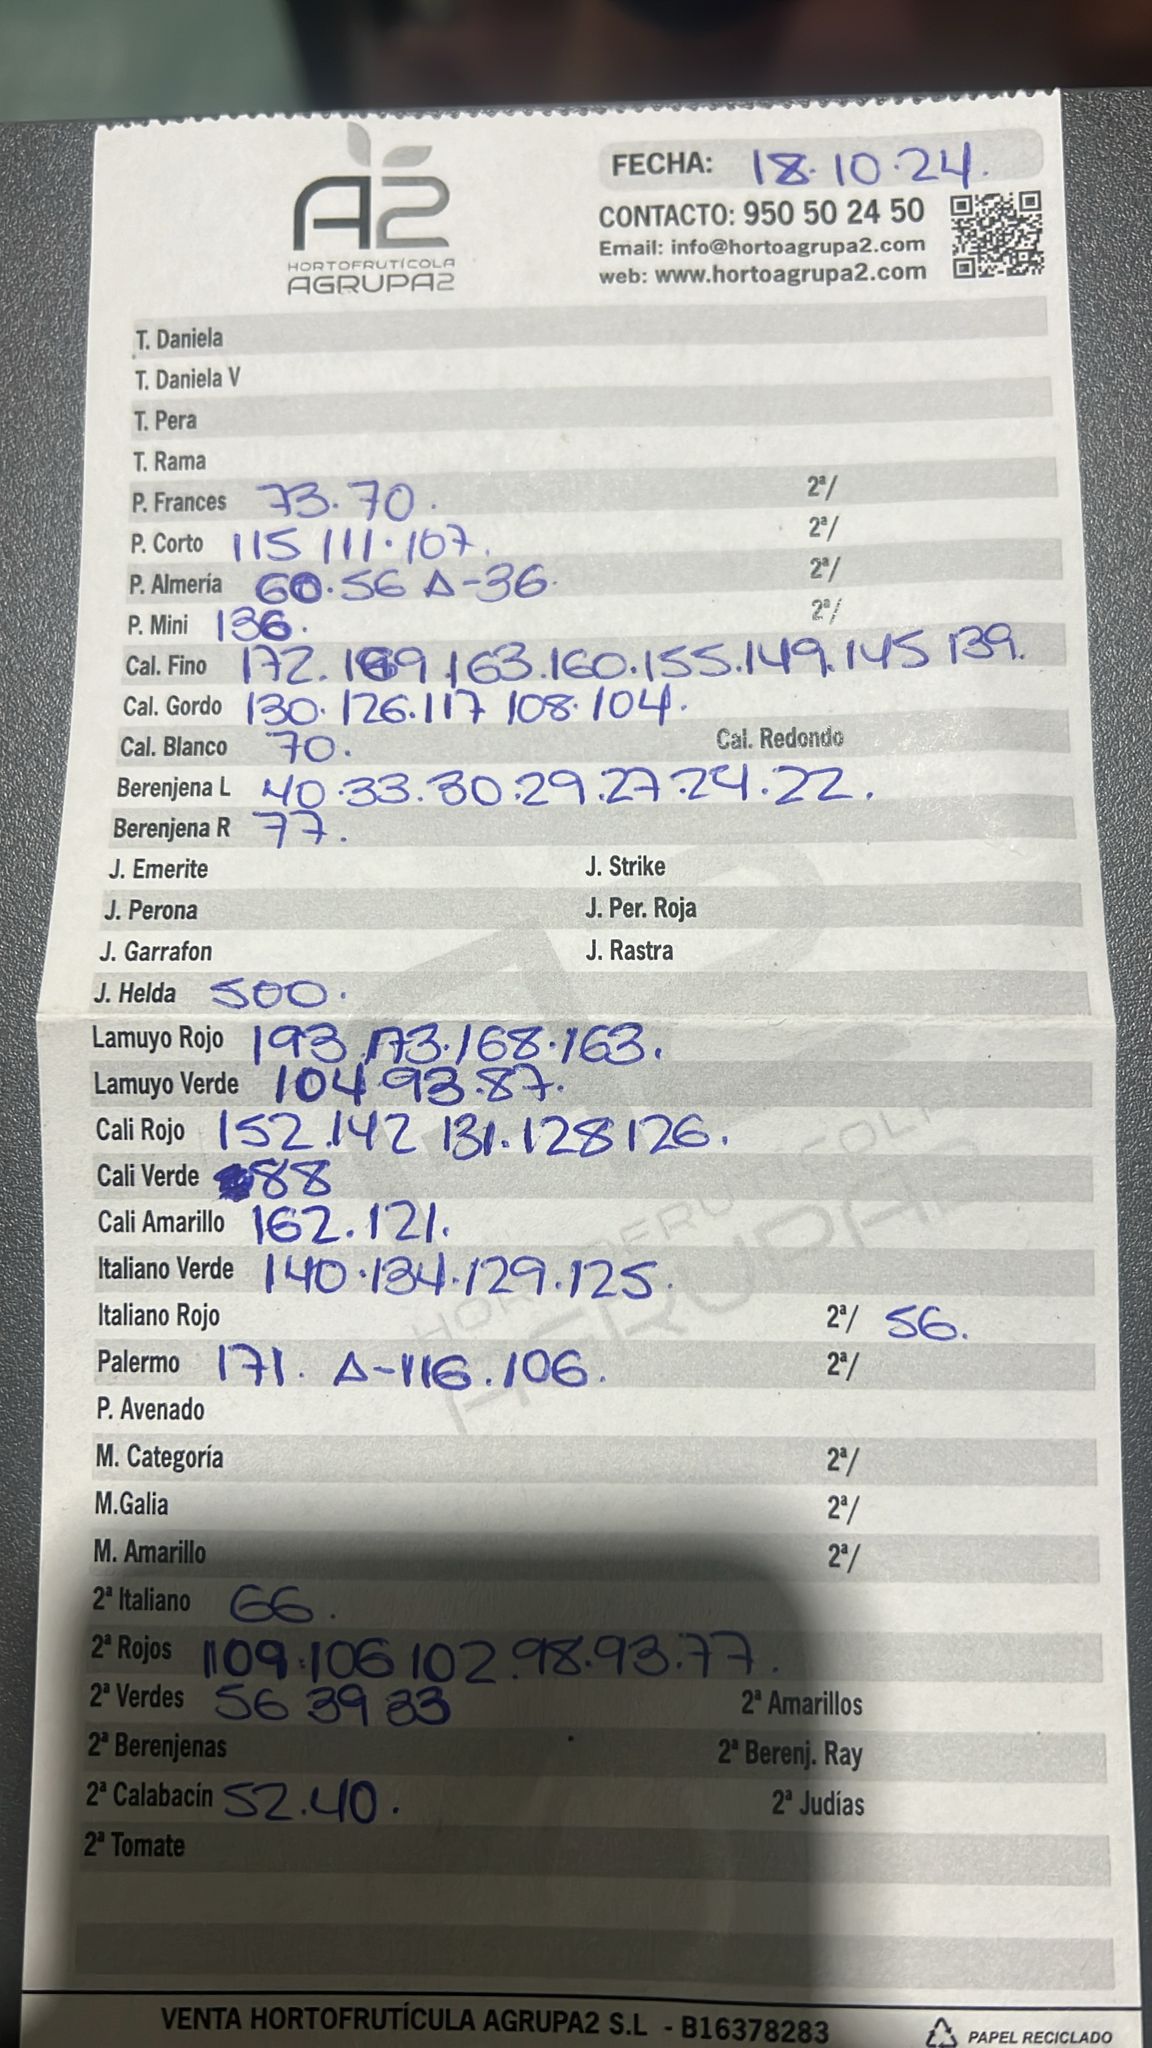 FECHA: 18.10.24.
A2
HORTOFRUTÍCOLA
AGRUPA2
CONTACTO: 950 50 24 50
Email: info@hortoagrupa2.com
web: www.hortoagrupa2.com
T. Daniela
T. Daniela V
T. Pera
T. Rama
P. Frances 73.70. 2ª/
P. Corto 115 111.107. 2ª/
P. Almería 60.56 Δ-36. 2ª/
P. Mini 136. 2ª/
Cal. Fino 172.169.163.160.155.149.145 139.
Cal. Gordo 130.126.117 108.104.
Cal. Blanco 70. Cal. Redondo
Berenjena L 40.33.30.29.27.24.22.
Berenjena R 77.
J. Emerite J. Strike
J. Perona J. Per. Roja
J. Garrafon J. Rastra
J. Helda 500.
Lamuyo Rojo 193.173.168.163.
Lamuyo Verde 104.93.87.
Cali Rojo 152.142 131.128 126.
Cali Verde 88
Cali Amarillo 162.121.
Italiano Verde 140.134.129.125.
Italiano Rojo 2ª/ 56.
Palermo 171. Δ-116.106. 2ª/
P. Avenado
M. Categoría 2ª/
M.Galia 2ª/
M. Amarillo 2ª/
2ª Italiano 66.
2ª Rojos 109.106 102.98.93.77.
2ª Verdes 56 39 33 2ª Amarillos
2ª Berenjenas 2ª Berenj. Ray
2ª Calabacín 52.40. 2ª Judías
2ª Tomate
VENTA HORTOFRUTÍCULA AGRUPA2 S.L - B16378283
PAPEL RECICLADO